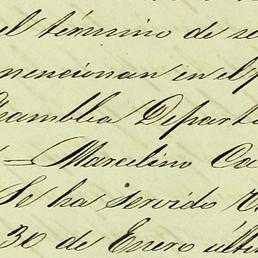 el término de se
mencionan en el p
samblea Departa
= Marcelino Ca
Se ha servido
30 de Enero últi